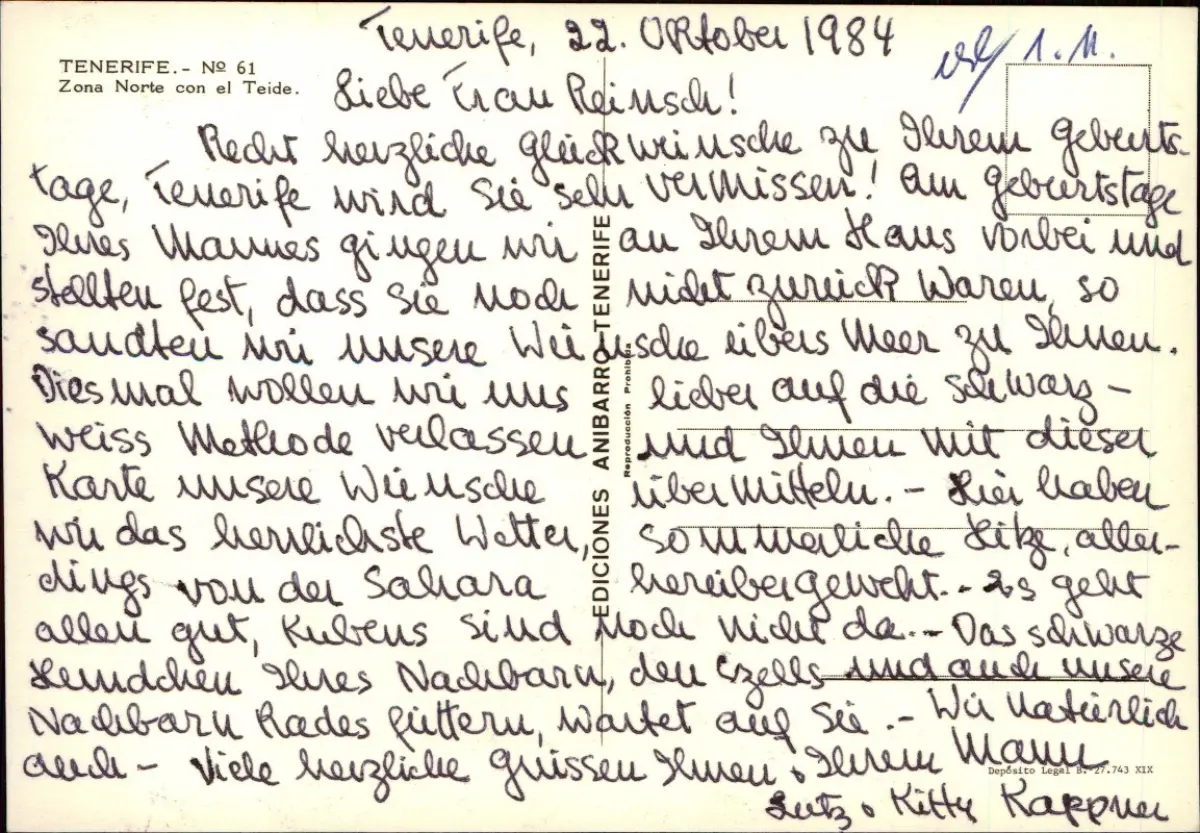 Tenerife, 22. Oktober 1984
erl. 1. 11.
TENERIFE.- Nº 61
Zona Norte con el Teide.
Liebe Frau Reinsch!
Recht herzliche Glückwünsche zu Ihrem Geburts-
tage, Tenerife wird Sie sehr vermissen! Am Geburtstage
Ihres Mannes gingen wir an Ihrem Haus vorbei und
stellten fest, dass Sie noch nicht zurück waren, so
sandten wir unsere Wünsche übers Meer zu Ihnen.
Diesmal wollen wir uns lieber auf die schwarz-
weiss Methode verlassen und Ihnen mit dieser
Karte unsere Wünsche übermitteln. - Hier haben
wir das herrlichste Wetter, sommerliche Hitze, aller-
dings von der Sahara herübergeweht. - Es geht
allen gut, Kubens sind noch nicht da. - Das schwarze
Hündchen Ihres Nachbarn, den Czells und auch unsere
Nachbarn Rades füttern, wartet auf Sie. - Wir natürlich
auch - Viele herzliche Grüssen Ihnen + Ihrem Mann
Lutz + Kitty Kappner
EDICIONES ANIBARRO-TENERIFE
Reproducción Prohibida
Depósito Legal B. 27.743 XIX